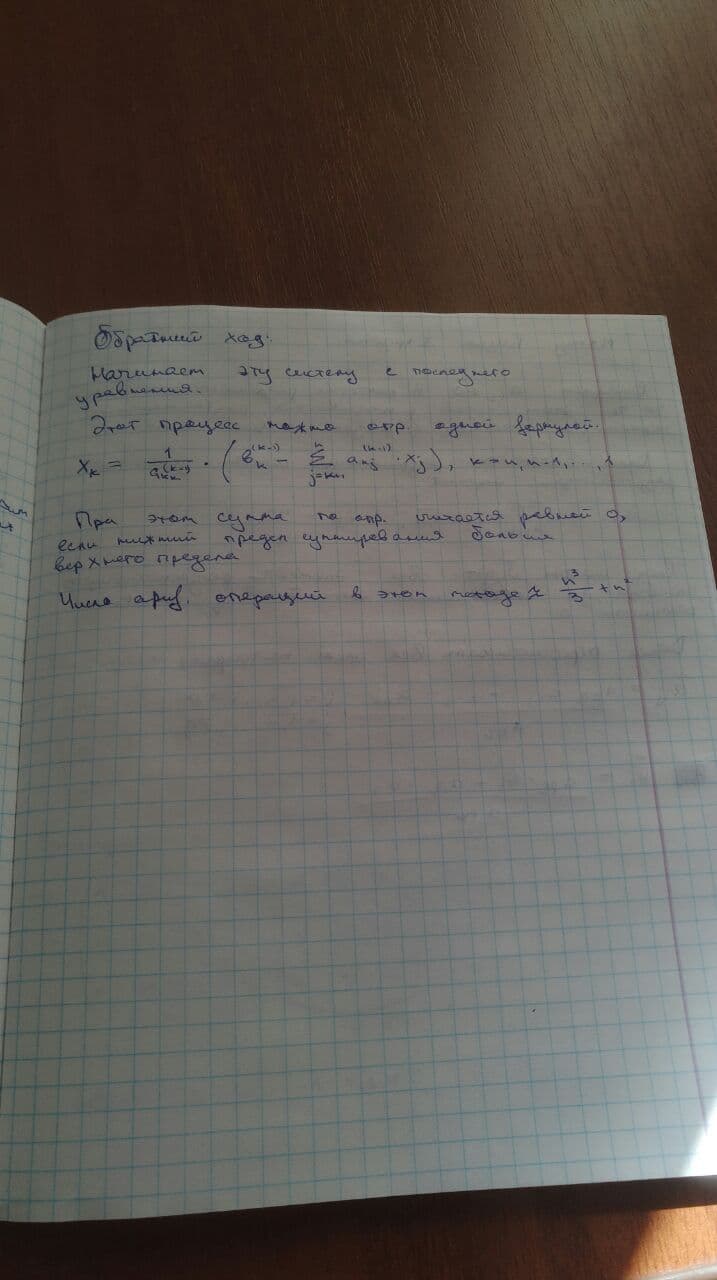 Обратний ход:
Начинает эту систему с последнего
уравнения.
Этот процесс можно опр. одной формулой.
x_k = 1/a_kk^(k-1) · ( b_k^(k-1) - ∑_{j=k+1}^{n} a_kj^(k-1) · x_j ), k = n, n-1, ..., 1
При этом сумма по опр. считается равной 0,
если нижний предел суммирования больше
верхнего предела
Число ариф. операций в этом методе ≈ n^3/3 + n^2